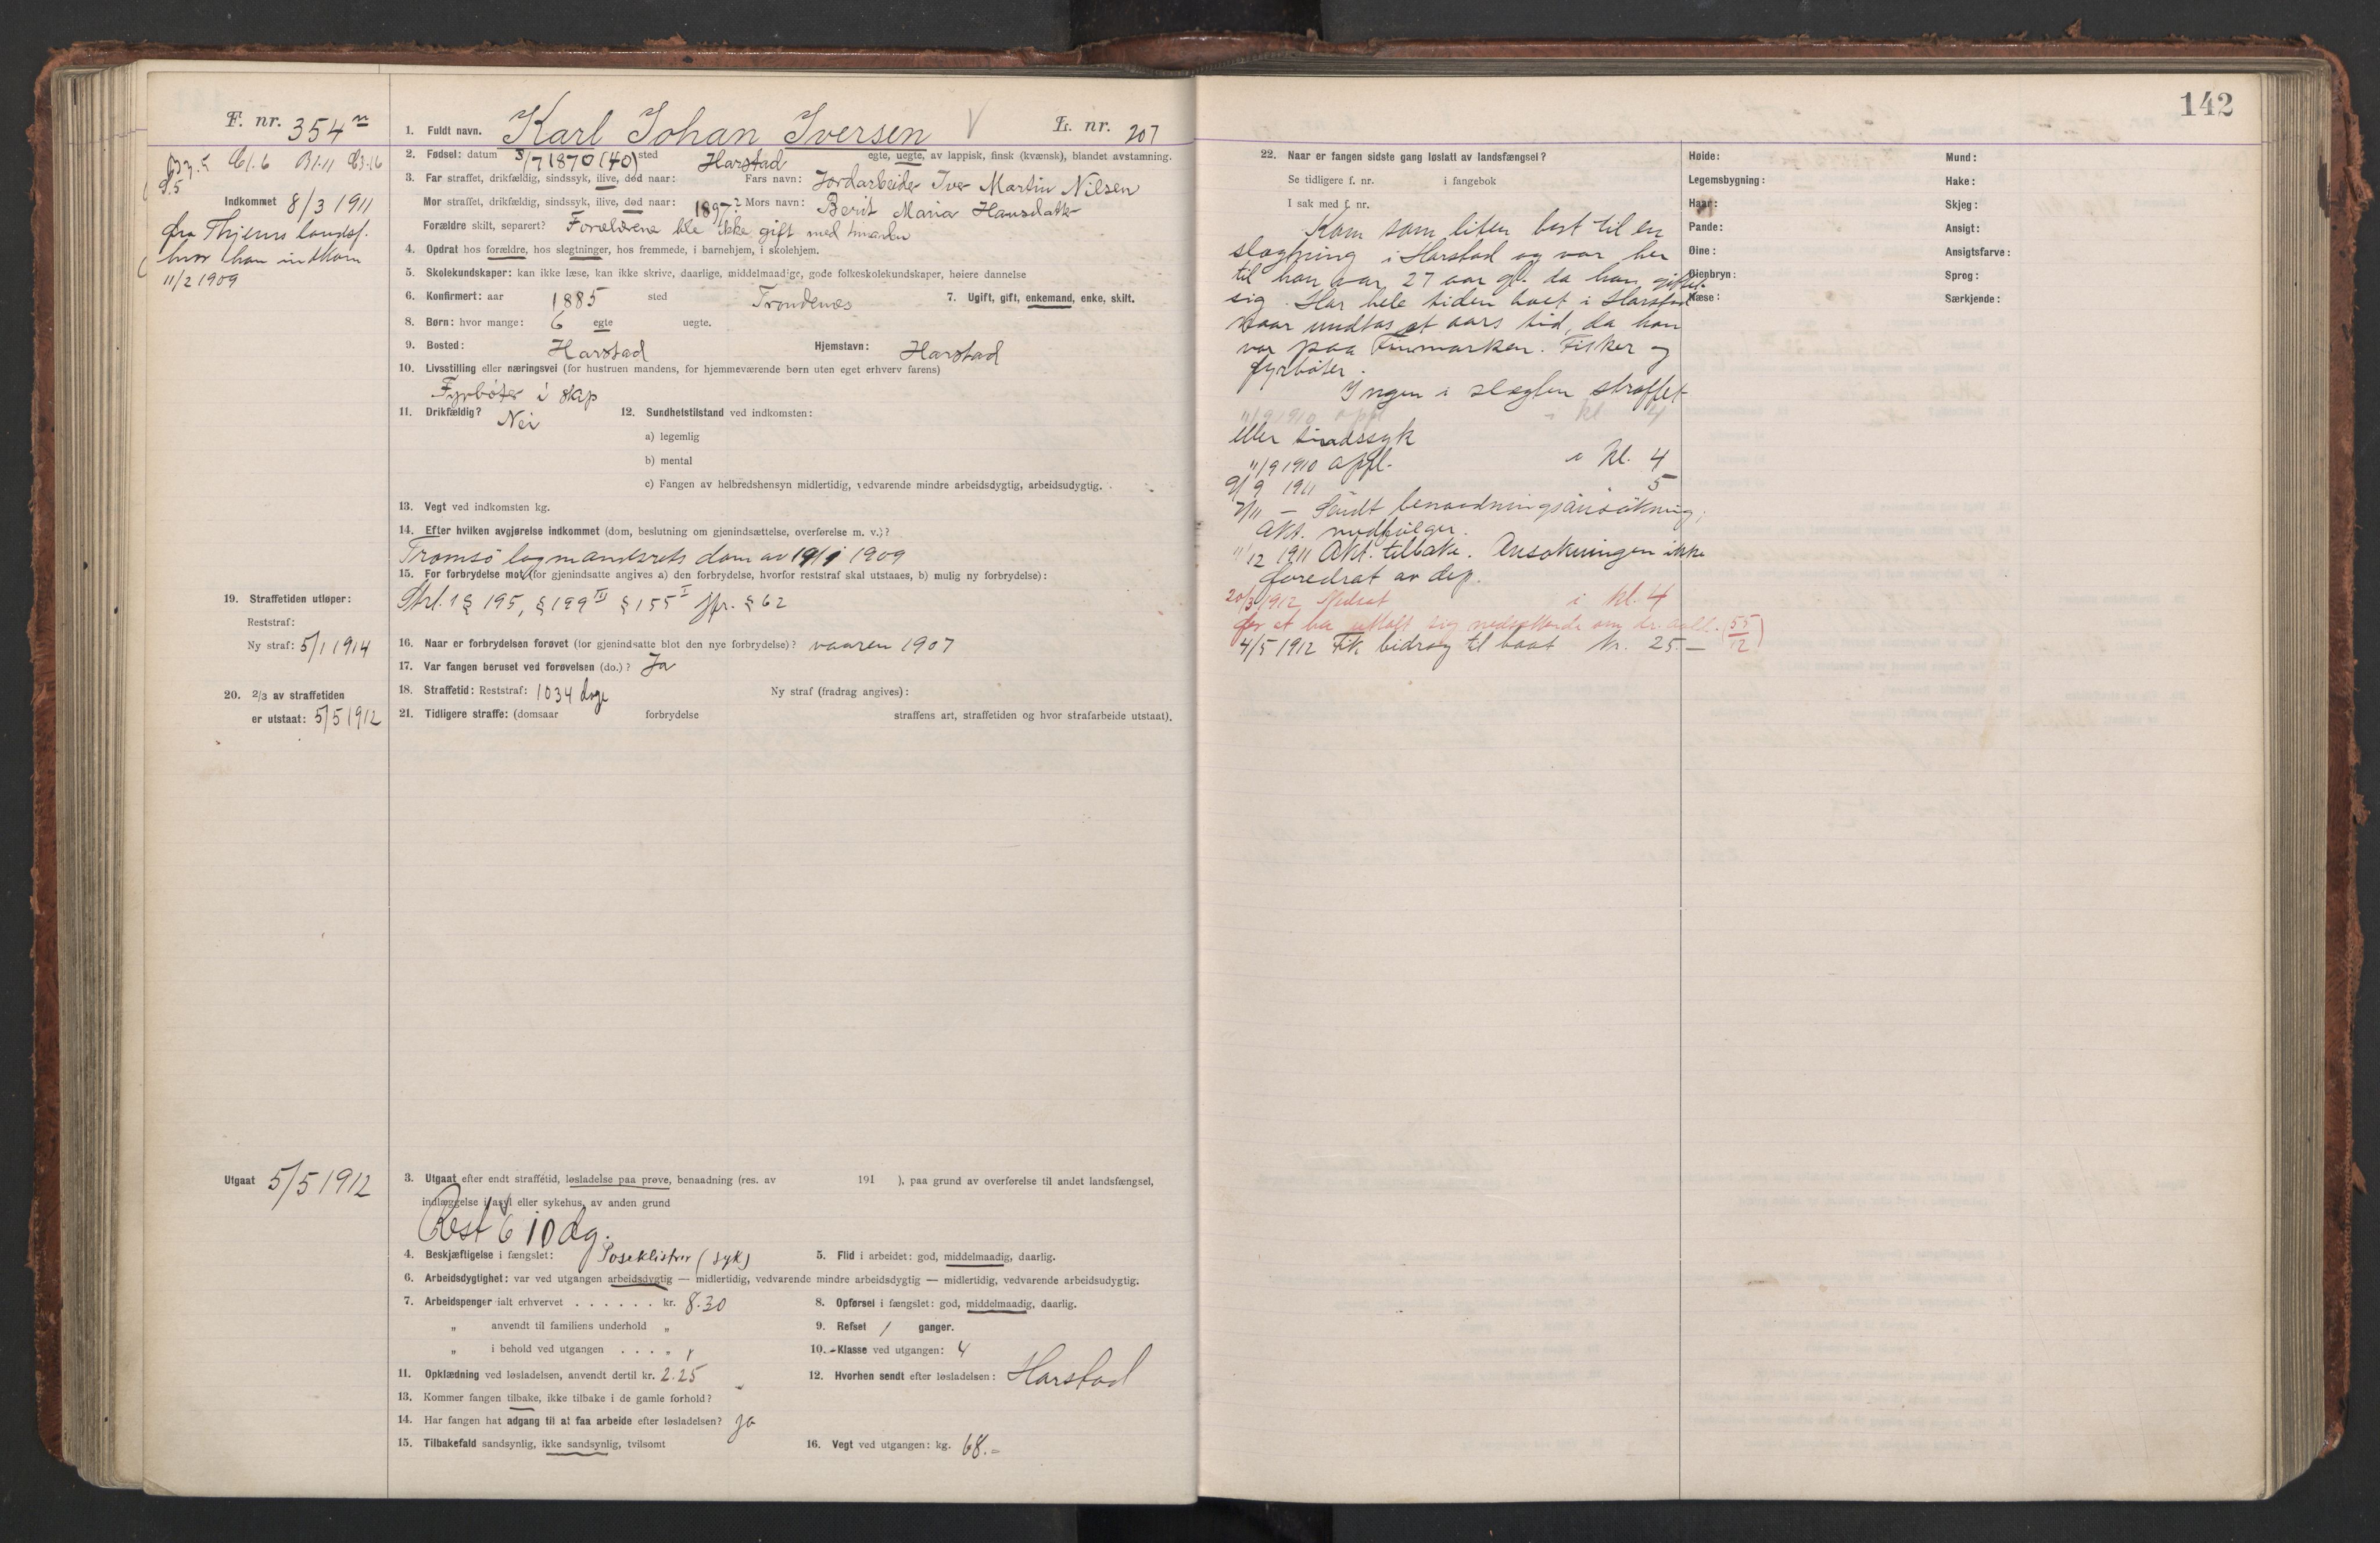 142
F. nr. 354
1. Fuldt navn. Karl Johan Iversen V L. nr. 207
2. Fødsel: datum 3/7 1870 (40) sted Harstad egte, uegte, av lappisk, finsk (kvænsk), blandet avstamning.
3. Far straffet, drikfældig, sindssyk, ilive, død naar: Fars navn: Jordarbeider Iver Martin Nilsen
Mor straffet, drikfældig, sindssyk, ilive, død naar: 1897? Mors navn: Berit Maria Hansdatter
Forældre skilt, separert? Forældrene ble ikke gift med hinanden
4. Opdrat hos forældre, hos slegtninger, hos fremmede, i barnehjem, i skolehjem.
5. Skolekundskaper: kan ikke læse, kan ikke skrive, daarlige, middelmaadige, gode folkeskolekundskaper, høiere dannelse
6. Konfirmert: aar 1885 sted Trondenes 7. Ugift, gift, enkemand, enke, skilt.
8. Børn: hvor mange: 6 egte uegte.
9. Bosted: Harstad Hjemstavn: Harstad
10. Livsstilling eller næringsvei (for hustruen mandens, for hjemmeværende børn uten eget erhverv farens)
Fyrbøter i skip
11. Drikfældig? Nei 12. Sundhetstilstand ved indkomsten:
a) legemlig
b) mental
c) Fangen av helbredshensyn midlertidig, vedvarende mindre arbeidsdygtig, arbeidsudygtig.
13. Vegt ved indkomsten kg.
14. Efter hvilken avgjørelse indkommet (dom, beslutning om gjenindsættelse, overførelse m. v.)?
Tromsø lagmandsrets dom av 19/1 1909
15. For forbrydelse mot (for gjenindsatte angives a) den forbrydelse, hvorfor reststraf skal utstaaes, b) mulig ny forbrydelse):
Strl. § 195, § 199 II § 155 I jfr. § 62
16. Naar er forbrydelsen forøvet (for gjenindsatte blot den nye forbrydelse)? vaaren 1907
17. Var fangen beruset ved forøvelsen (do.)? Ja
18. Straffetid: Reststraf: 1034 dage Ny straf (fradrag angives):
21. Tidligere straffe: (domsaar forbrydelse straffens art, straffetiden og hvor strafarbeide utstaat).
Indkommet 8/3 1911
fra Thjems landsf.
hvor han indkom
11/2 1909
19. Straffetiden utløper:
Reststraf:
Ny straf: 5/1 1914
20. 2/3 av straffetiden
er utstaat: 5/5 1912
Utgaat 5/5 1912
3. Utgaat efter endt straffetid, løsladelse paa prøve, benaadning (res. av 191 ), paa grund av overførelse til andet landsfængsel,
indlæggelse i asyl eller sykehus, av anden grund
Rest 610 dg.
4. Beskjæftigelse i fængslet: Poseklistrer (syk) 5. Flid i arbeidet: god, middelmaadig, daarlig.
6. Arbeidsdygtighet: var ved utgangen arbeidsdygtig — midlertidig, vedvarende mindre arbeidsdygtig — midlertidig, vedvarende arbeidsudygtig.
7. Arbeidspenger ialt erhvervet . . . . . . kr. 8.30 8. Opførsel i fængslet: god, middelmaadig, daarlig.
„ anvendt til familiens underhold „ 9. Refset 1 ganger.
„ i behold ved utgangen . . . „ 10. Klasse ved utgangen: 4
11. Opklædning ved løsladelsen, anvendt dertil kr. 2.25 12. Hvorhen sendt efter løsladelsen: Harstad
13. Kommer fangen tilbake, ikke tilbake i de gamle forhold?
14. Har fangen hat adgang til at faa arbeide efter løsladelsen? ja
15. Tilbakefald sandsynlig, ikke sandsynlig, tvilsomt 16. Vegt ved utgangen: kg. 68.-
22. Naar er fangen sidste gang løslatt av landsfængsel?
Se tidligere f. nr. i fangebok
I sak med f. nr.
Kom som liten bort til en
slegtning i Harstad og var her
til han var 27 aar gl. da han giftet
sig. Har hele tiden boet i Harstad
naar undtas et aars tid, da han
var paa Finmarken. Fisker og
fyrbøter.
Ingen i slegten straffet
11/9 1910 opfl. i kl 4
eller sindssyk
11/9 1910 opfl. i kl. 4
9/9 1911 5
7/11 — Sendt benaadningsansøkning;
Akt. medfølger.
11/12 1911 Akt. tilbake. Ansøkningen ikke
foredrat av dep.
20/3 1912 Nedsat i kl. 4
for at ha uttalt sig nedsættende om (55/12)
4/5 1912 Fik bidrag til baat Kr. 25.—
Høide:
Legemsbygning:
Haar:
Pande:
Øine:
Øienbryn:
Næse:
Mund:
Hake:
Skjeg:
Ansigt:
Ansigtsfarve:
Sprog:
Særkjende: